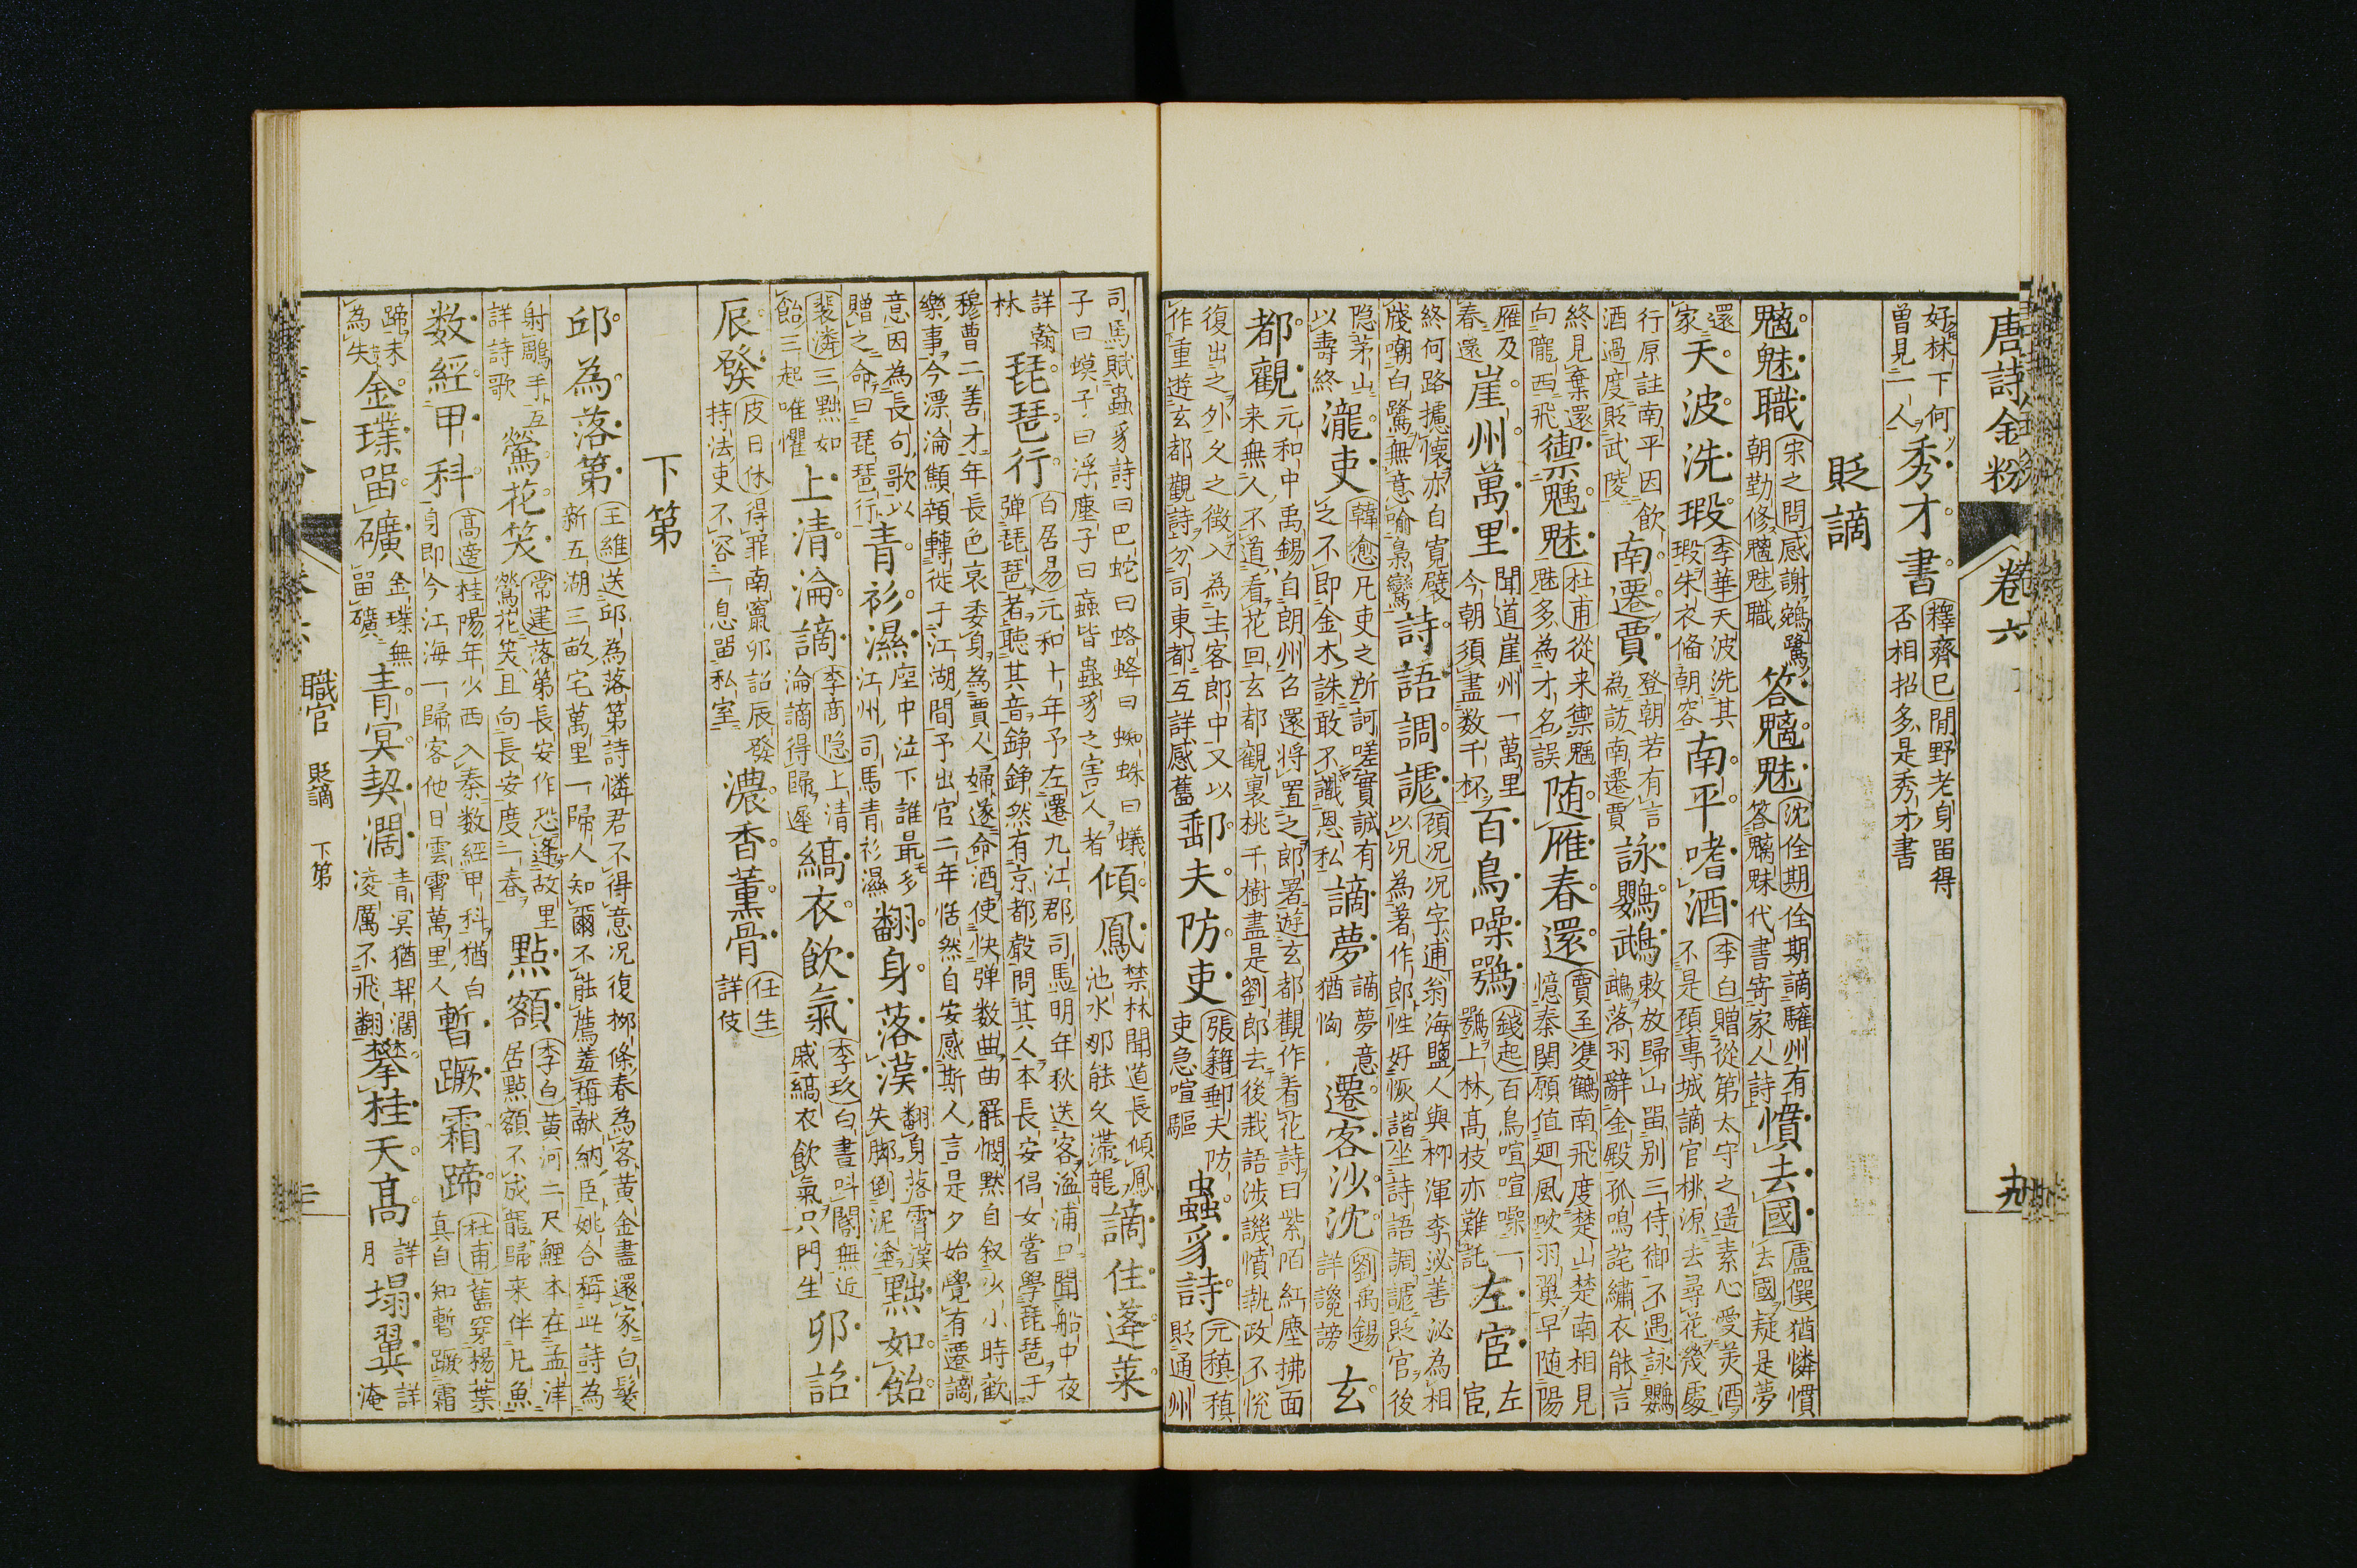 唐詩金粉 卷六 九
好林下何 曾見一人 秀才書 釋齊已 閒野老身畄得 否相招多是秀才書
貶謫
魑魅職 宋之問 感謝鵷鷺 朝勤修魑魅職 答魑魅 沈佺期 佺期謫驩州有 答魑魅代書寄家人詩 慣去國 盧僎 猶憐慣 去國疑是夢
還家 天波洗瑕 李華 天波洗其 瑕朱衣俻朝容 南平嗜酒 李白 贈從第太守之遥素心愛美酒 不是頋專城謫官桃源去尋花幾處
行原註南平因飲 酒過度貶武陵 南遷賈 登朝若有言 為訪南遷賈 詠鸚鵡 敕放歸山畄別三侍御不遇詠鸚 鵡落羽辭金殿孤鳴詫繡衣能言
終見棄還 向隴西飛 禦魑魅 杜甫 從来禦魑 魅多為才名誤 随雁春還 賈至 雙鶴南飛度楚山楚南相見 憶秦関願值廻風吹羽翼早随陽
雁及 春還 崖州萬里 聞道崖州一萬里 今朝須盡数千杯 百鳥噪鶚 錢起 百鳥喧喧噪一 鶚上林髙枝亦難託 左宦 左 宦
終何路攄懷亦自寛襞 牋嘲白鷺無意喻梟鸞 詩語調謔 頋况 况字逋翁海鹽人與栁渾李泌善泌為相 以况為著作郎性好恢諧坐詩語調謔貶官後
隐茅山 以壽終 瀧吏 韓愈 凡吏之所訶嗟實誠有 之不即金木誅敢不識恩私 謫夢 謫夢意 猶恟 遷客沙沈 劉禹錫 詳讒謗 玄
都觀 元和中禹錫自朗州召還將置之郎署遊玄都觀作看花詩曰紫陌紅塵拂面 来無人不道看花回玄都觀裏桃千樹盡是劉郎去後栽語涉譏憤執政不悅
復出之外久之徵入為主客郎中又以 作重遊玄都觀詩分司東都互詳感舊 郵夫防吏 張籍 郵夫防 吏急喧驅 蟲豸詩 元稹 稹 貶通州
司馬賦蟲豸詩曰巴蛇曰蛒蜂曰蜘蛛曰蟻 子曰蟆子曰浮塵子曰䖟皆蟲豸之害人者 傾鳳 禁林聞道長傾鳳 池水那能久滯龍 謫住蓬莱
詳翰 林 琵琶行 白居易 元和十年予左遷九江郡司馬明年秋送客湓浦口聞船中夜 弹琵琶者聽其音錚錚然有京都聲問其人本長安倡女嘗學琵琶于
穆曹二善才年長色衰委身為賈人婦遂命酒使快弹数曲曲罷憫默自叙少小時歡 樂事今漂淪顦顇轉徙于江湖間予出官二年恬然自安感斯人言是夕始覺有遷謫
意因為長句歌以 贈之命曰琵琶行 青衫濕 座中泣下誰最多 江州司馬青衫濕 翻身落漢 翻身落霄漢 失脚倒泥塗 黜如飴
裴潾 三黜如 飴三起唯懼 上清淪謫 李商隐 上清 淪謫得歸遲 縞衣飲氣 李玖 白晝叫閽無近 戚縞衣飲氣只門生 卯詔
辰發 皮日休 得罪南竄卯詔辰發 持法吏不容一息畄私室 濃香薫骨 任生 詳伎
下第
邱為落第 王維 送邱為落第詩憐君不得意况復栁條春為客黄金盡還家白髮 新五湖三畝宅萬里一歸人知爾不能薦羞稱献納臣姚合稱此詩為
射鵰手互 詳詩歌 鶯花笑 常建 落第長安作恐逢故里 鶯花笑且向長安度一春 點額 李白 黄河二尺鯉本在孟津 居點額不成龍歸来伴凡魚
数經甲科 髙適 桂陽年少西入秦数經甲科猶白 身即今江海一歸客他日雲霄萬里人 暫蹶霜蹄 杜甫 舊穿楊葉 真自知暫蹶霜
蹄末 為失 金璞畄礦 金璞無 畄礦 青冥契濶 青冥猶契濶 凌厲不飛翻 攀桂天髙 詳 月 塌翼 詳 淹
職官 貶謫 下第